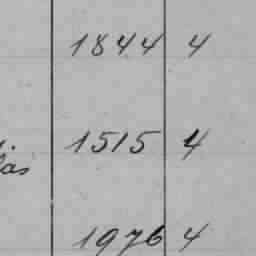 1844 4
1515 4
las
1976 4